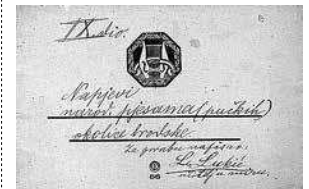 IX. dio.
Napjevi
narod. pjesama (pučkih)
okolice brodske
Za porabu napisao:
L. Lukić